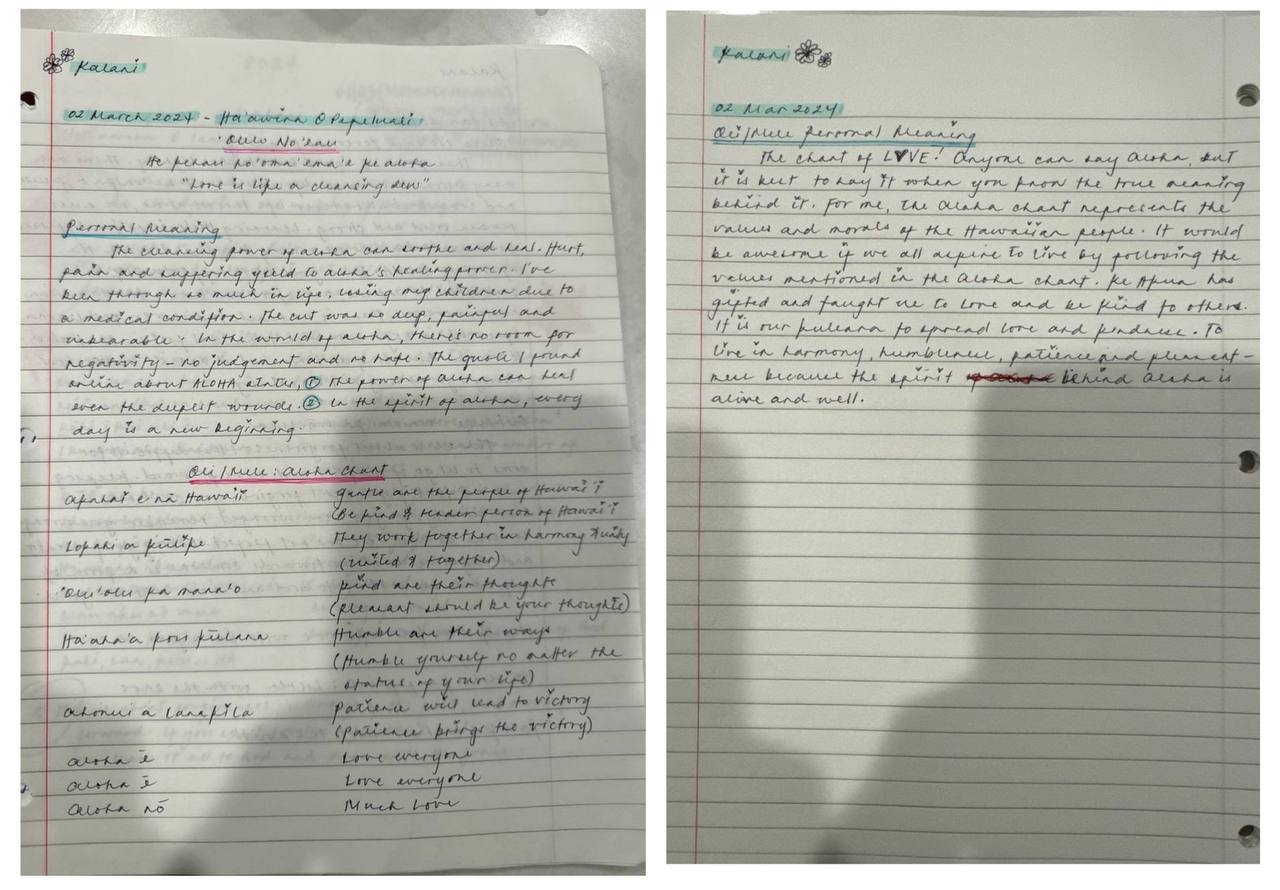 Kalani
02 March 2024 - Ha'awina O Pepeluali
'Olelo No'eau
He kehau ho'oma'ema'e ke aloha
"Love is like a cleansing dew"
Personal Meaning
The cleansing power of aloha can soothe and heal. Hurt,
pain and suffering yield to aloha's healing power. I've
been through so much in life, losing my children due to
a medical condition. The cut was so deep, painful and
unbearable. In the world of aloha, there's no room for
negativity - no judgement and no hate. The quote I found
online about ALOHA states, ① The power of aloha can heal
even the deepest wounds. ② In the spirit of aloha, every
day is a new beginning.
Oli/Mele: Aloha Chant
Akahai e nā Hawai'i
Gentle are the people of Hawai'i
(Be kind & tender person of Hawai'i
Lokahi a kūlike
They work together in harmony & unity
(United & together)
'Olu'olu ka mana'o
Kind are their thoughts
(pleasant should be your thoughts)
Ha'aha'a kou kūlana
Humble are their ways
(Humble yourself no matter the
status of your life)
Ahonui a lanakila
Patience will lead to victory
(Patience brings the victory)
Aloha ē
Love everyone
Aloha ē
Love everyone
Aloha nō
Much Love
Kalani
02 Mar 2024
Oli/Mele Personal Meaning
The chant of L♥VE! Anyone can say Aloha, but
it is best to say it when you know the true meaning
behind it. For me, the Aloha chant represents the
values and morals of the Hawaiian people. It would
be awesome if we all aspire to live by following the
values mentioned in the Aloha chant. Ke Akua has
gifted and taught us to love and be kind to others.
It is our kuleana to spread love and kindness. To
live in harmony, humbleness, patience and pleasent-
ness because the spirit behind Aloha is
alive and well.